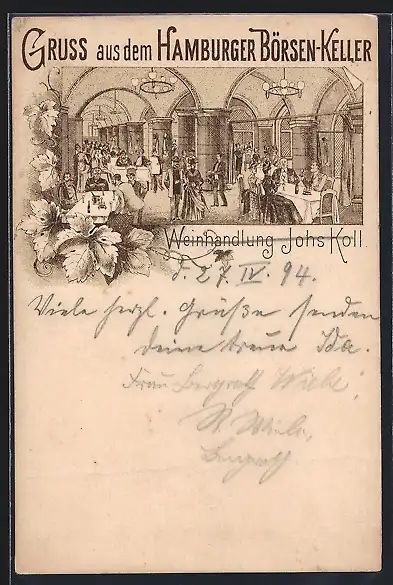 GRUSS aus dem HAMBURGER BÖRSEN-KELLER
Weinhandlung Johs Koll.
d. 27. IV. 94.
Viele herzl. Grüße senden
deine treue Ida.
Frau Bergrath